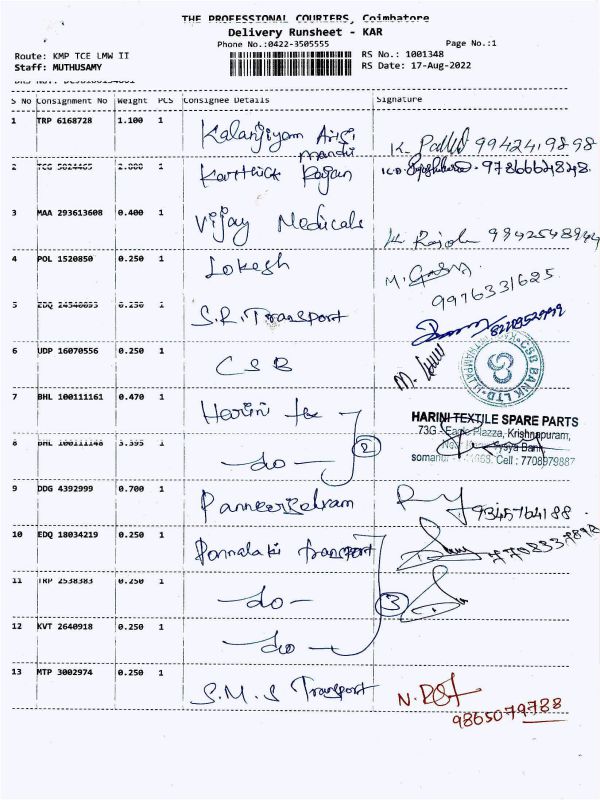 THE PROFESSIONAL COURIERS, Coimbatore
Delivery Runsheet - KAR
Phone No.:0422-3505555
Page No.:1
Route: KMP TCE LMW II
RS No.: 1001348
Staff: MUTHUSAMY
RS Date: 17-Aug-2022
S No Consignment No Weight PCS Consignee Details Signature
1 TRP 6168728 1.100 1 Kalanjiyam Arisi
mandi K. 9942419898
2 1 Karthick Rajan 9786662828
3 MAA 293613608 0.400 1 Vijay Medicals K. 9942548944
4 POL 1520850 0.250 1 Lokesh M.
9976331625
5 0.250 1 S.R. Transport
6 UDP 16070556 0.250 1 CSB M.
CSB BANK LTD.
7 BHL 100111161 0.470 1 Harini tex
HARINI TEXTILE SPARE PARTS
73G - Eagle Plazza, Krishnapuram,
Vysya Bank,
Cell : 7708979887
8 BHL 100111148 3.395 1 -do- 2
9 DDG 4392999 0.700 1 Panneerselvam 9345764188
10 EDQ 18034219 0.250 1 Ponnalaki transport
11 TRP 2538383 0.250 1 -do- 3
12 KVT 2640918 0.250 1 -do-
13 MTP 3002974 0.250 1 S.M.S Transport N.
9865079788